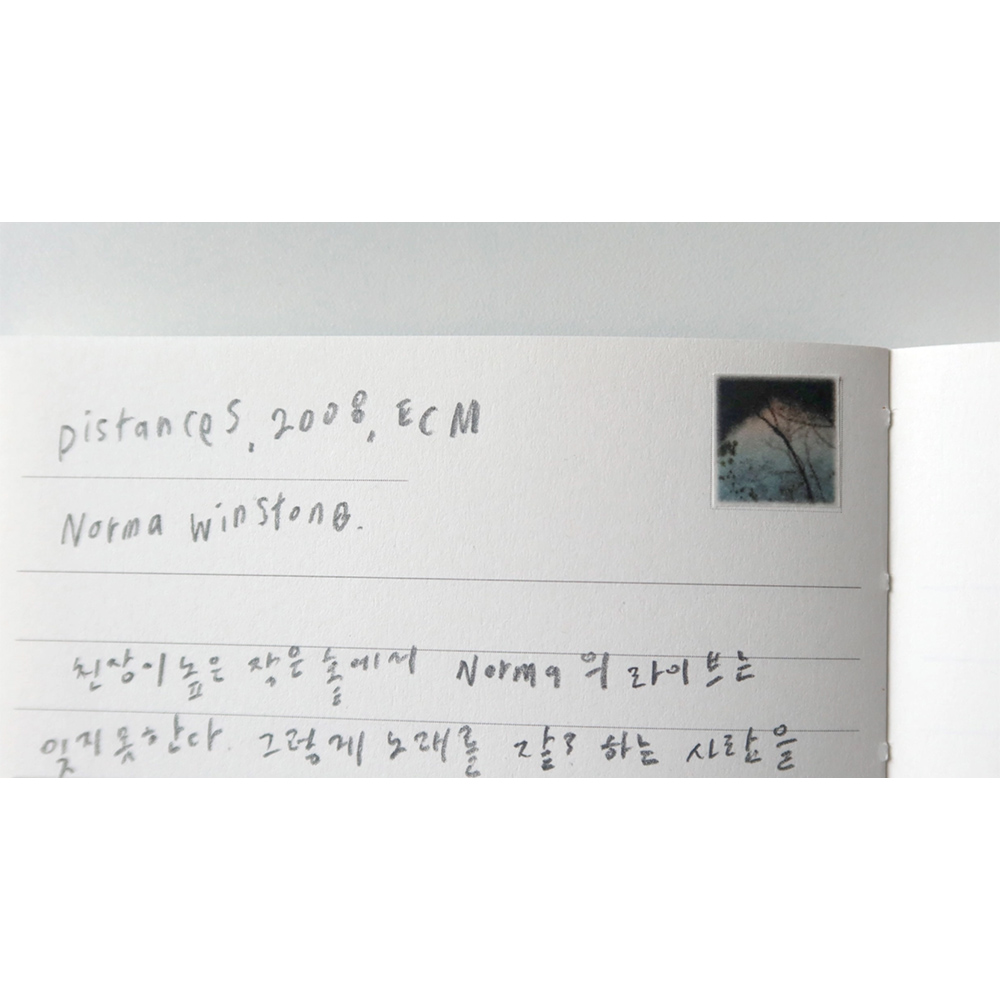 Distances, 2008, ECM
Norma Winstone.
천장이 높은 작은 홀에서 Norma의 라이브는
잊지 못한다. 그렇게 노래를 잘? 하는 사람을